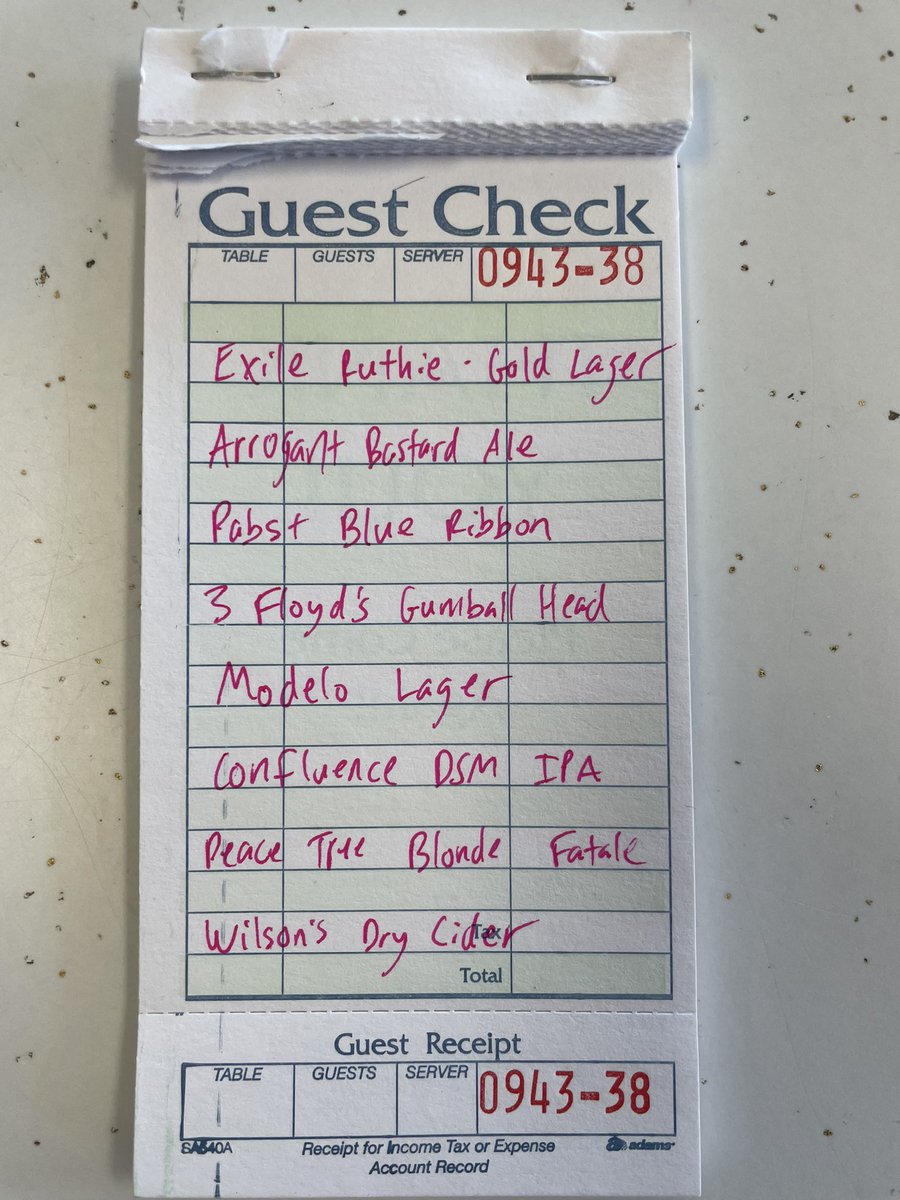 Guest Check
TABLE GUESTS SERVER 0943-38
Exile Ruthie - Gold Lager
Arrogant Bastard Ale
Pabst Blue Ribbon
3 Floyd's Gumball Head
Modelo Lager
Confluence DSM IPA
Peace Tree Blonde Fatale
Wilson's Dry Cider
Tax
Total
Guest Receipt
TABLE GUESTS SERVER 0943-38
SA540A Receipt for Income Tax or Expense adams
Account Record